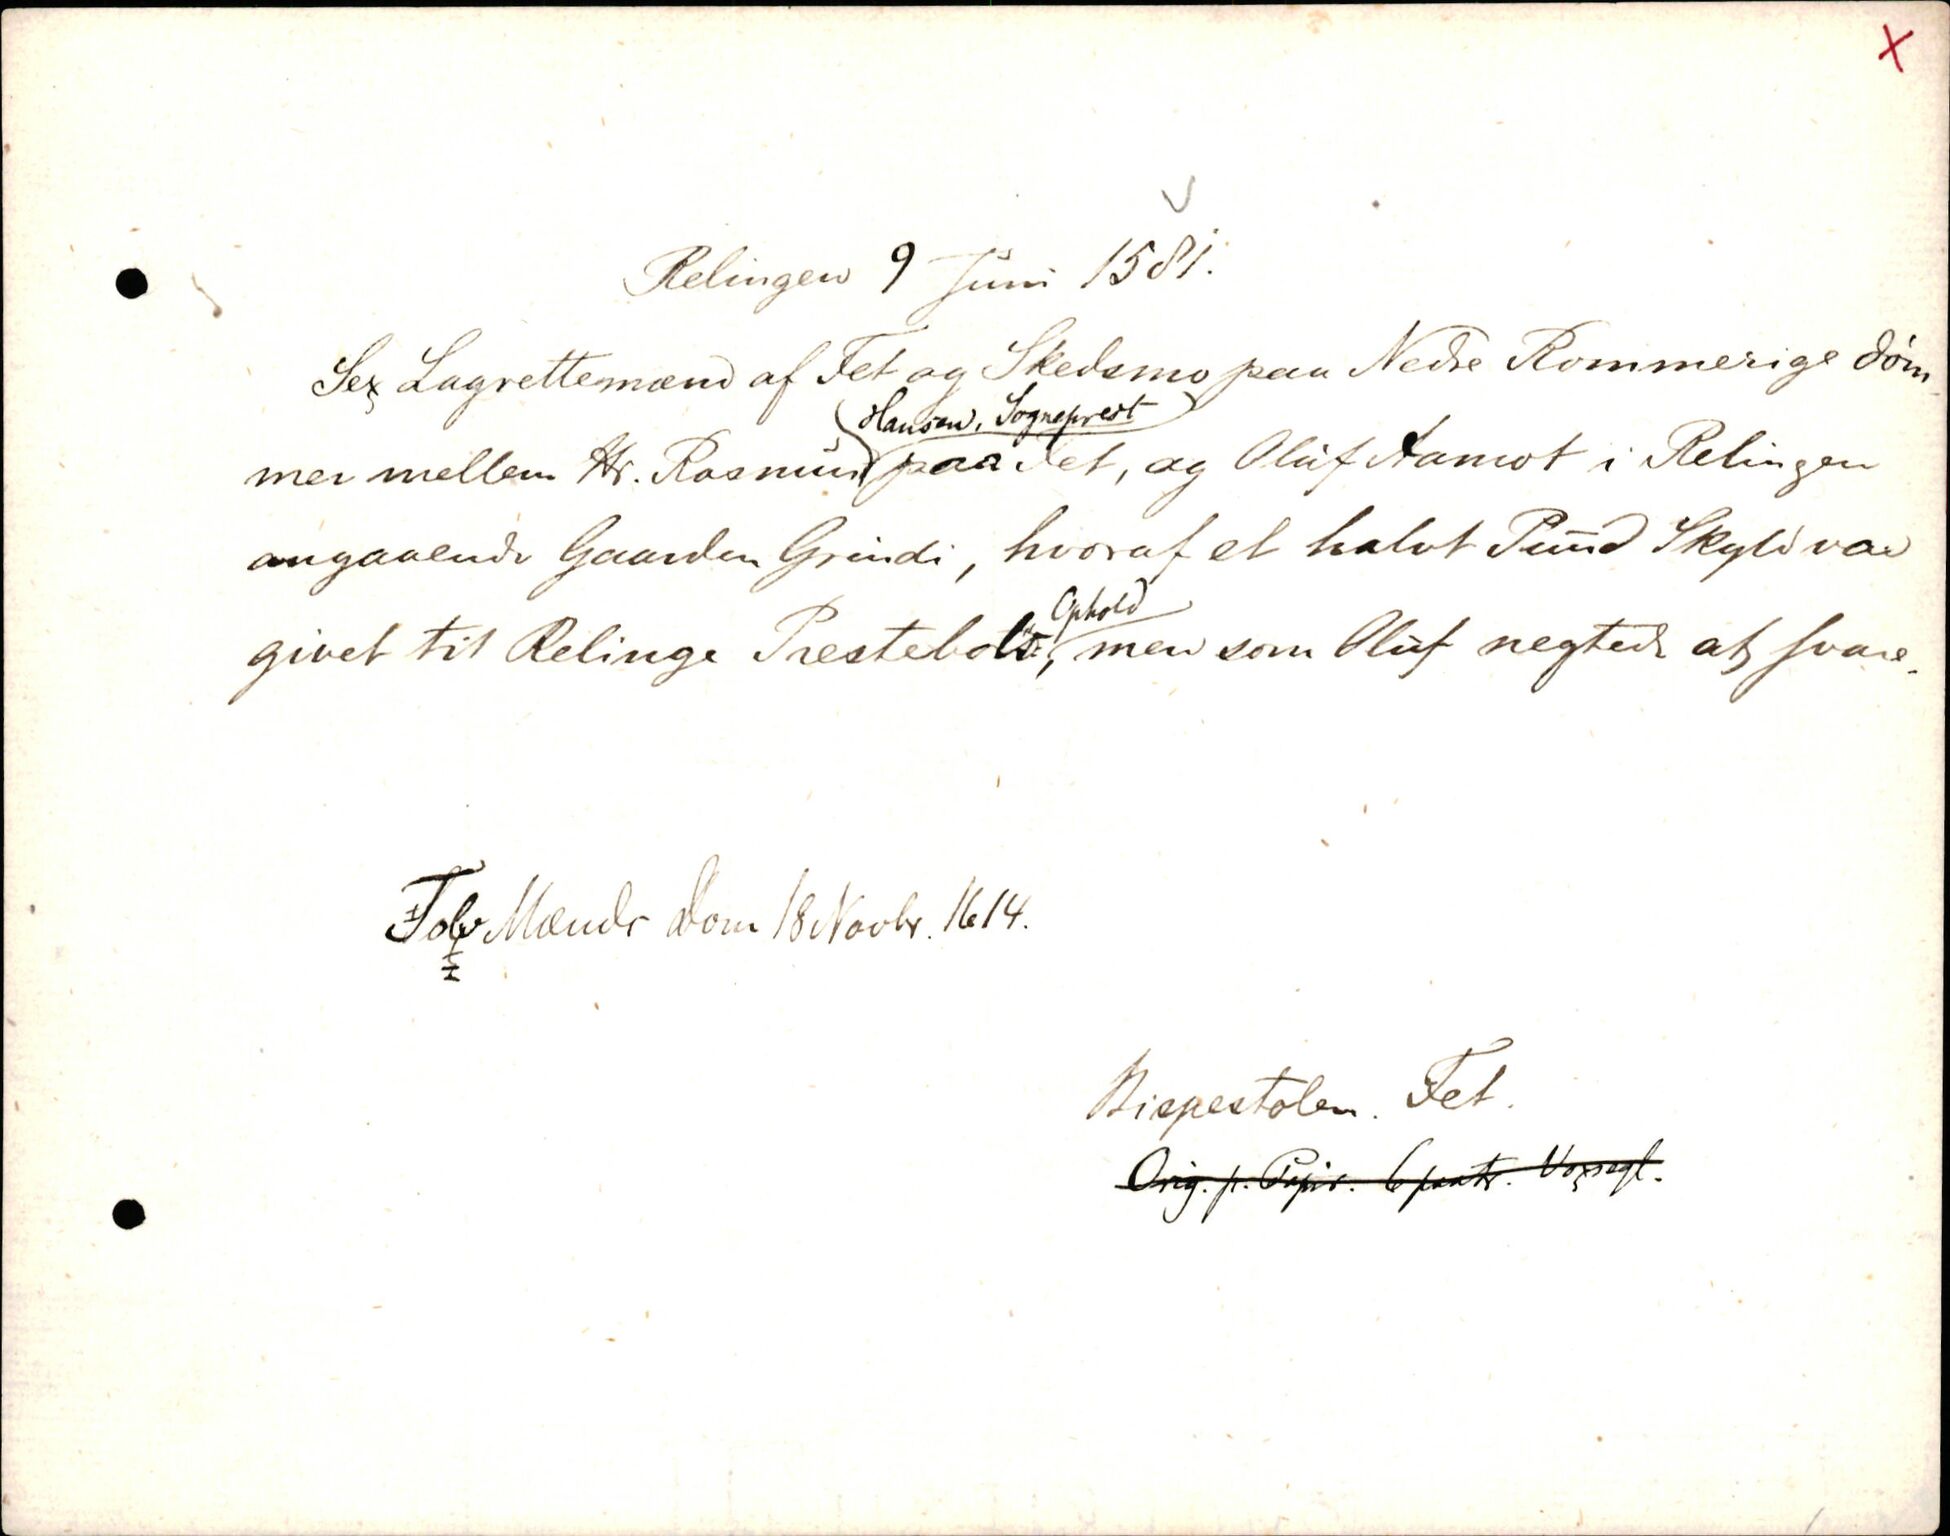 X
Relingen 9 Juni 1581.
Sex Lagrettemænd af Fet og Skedsmo paa Nedre Rommerige döm
Hansen, Sogneprest
mer mellem Hr. Rasmus paa Fet, og Oluf Aamot i Relingen
angaaende Gaarden Grindi, hvoraf et halvt Pund Skyld var
Ophold
givet til Relinge Prestebols, men som Oluf negtede at svare.
Tolv Mænds Dom 18 Novbr. 1614.
Bispestolen. Fet.
Orig. p. Papir. 6 paatr. Voxsegl.